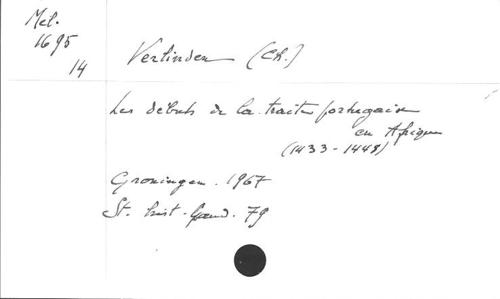 Mél.
1695
14
Verlinden (Ch.)
Les débuts de la traite portugaise
en Afrique
(1433-1448)
Groningen. 1967
St. hist. Gand. 79